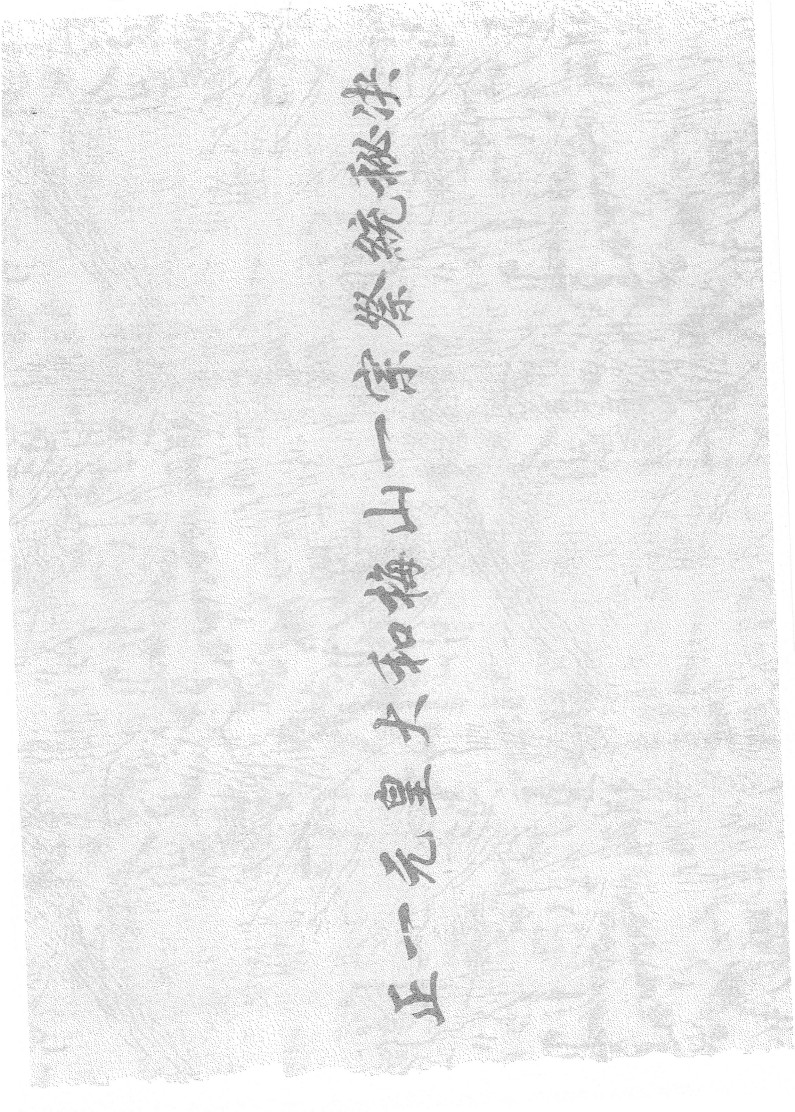 正一元皇大和梅山一宗祭統秘决